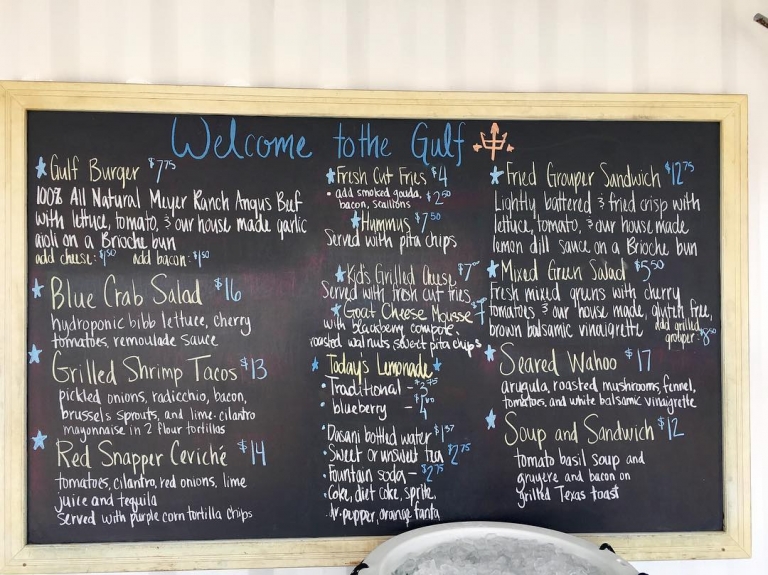 Welcome to the Gulf
Gulf Burger $7.75
100% All Natural Meyer Ranch Angus Beef
with lettuce, tomato, & our house made garlic
aioli on a Brioche bun
add cheese: $1.50 add bacon: $1.50
Blue Crab Salad $16
hydroponic bibb lettuce, cherry
tomatoes, remoulade sauce
Grilled Shrimp Tacos $13
pickled onions, radicchio, bacon,
brussels sprouts, and lime-cilantro
mayonnaise in 2 flour tortillas
Red Snapper Ceviché $14
tomatoes, cilantro, red onions, lime
juice and tequila
served with purple corn tortilla chips
Fresh Cut Fries $4
• add smoked gouda,
bacon, scallions $2.50
Hummus $7.50
Served with pita chips
Kids Grilled Cheese $7
Served with fresh cut fries
Goat Cheese Mousse $7
with blackberry compote,
roasted walnuts, sweet pita chips
Today's Lemonade
• Traditional - $2.75
• blueberry - $4
• Dasani bottled water $1.57
• Sweet or unsweet tea $2.75
• Fountain soda - $2.75
• Coke, diet coke, sprite,
dr. pepper, orange fanta
Fried Grouper Sandwich $12.75
Lightly battered & fried crisp with
lettuce, tomato, & our house made
lemon dill sauce on a Brioche bun
Mixed Green Salad $5.50
Fresh mixed greens with cherry
tomatoes & our house made, gluten free,
brown balsamic vinaigrette add grilled
grouper: $8.50
Seared Wahoo $17
arugula, roasted mushrooms, fennel,
tomatoes, and white balsamic vinaigrette
Soup and Sandwich $12
tomato basil soup and
gruyere and bacon on
grilled Texas toast